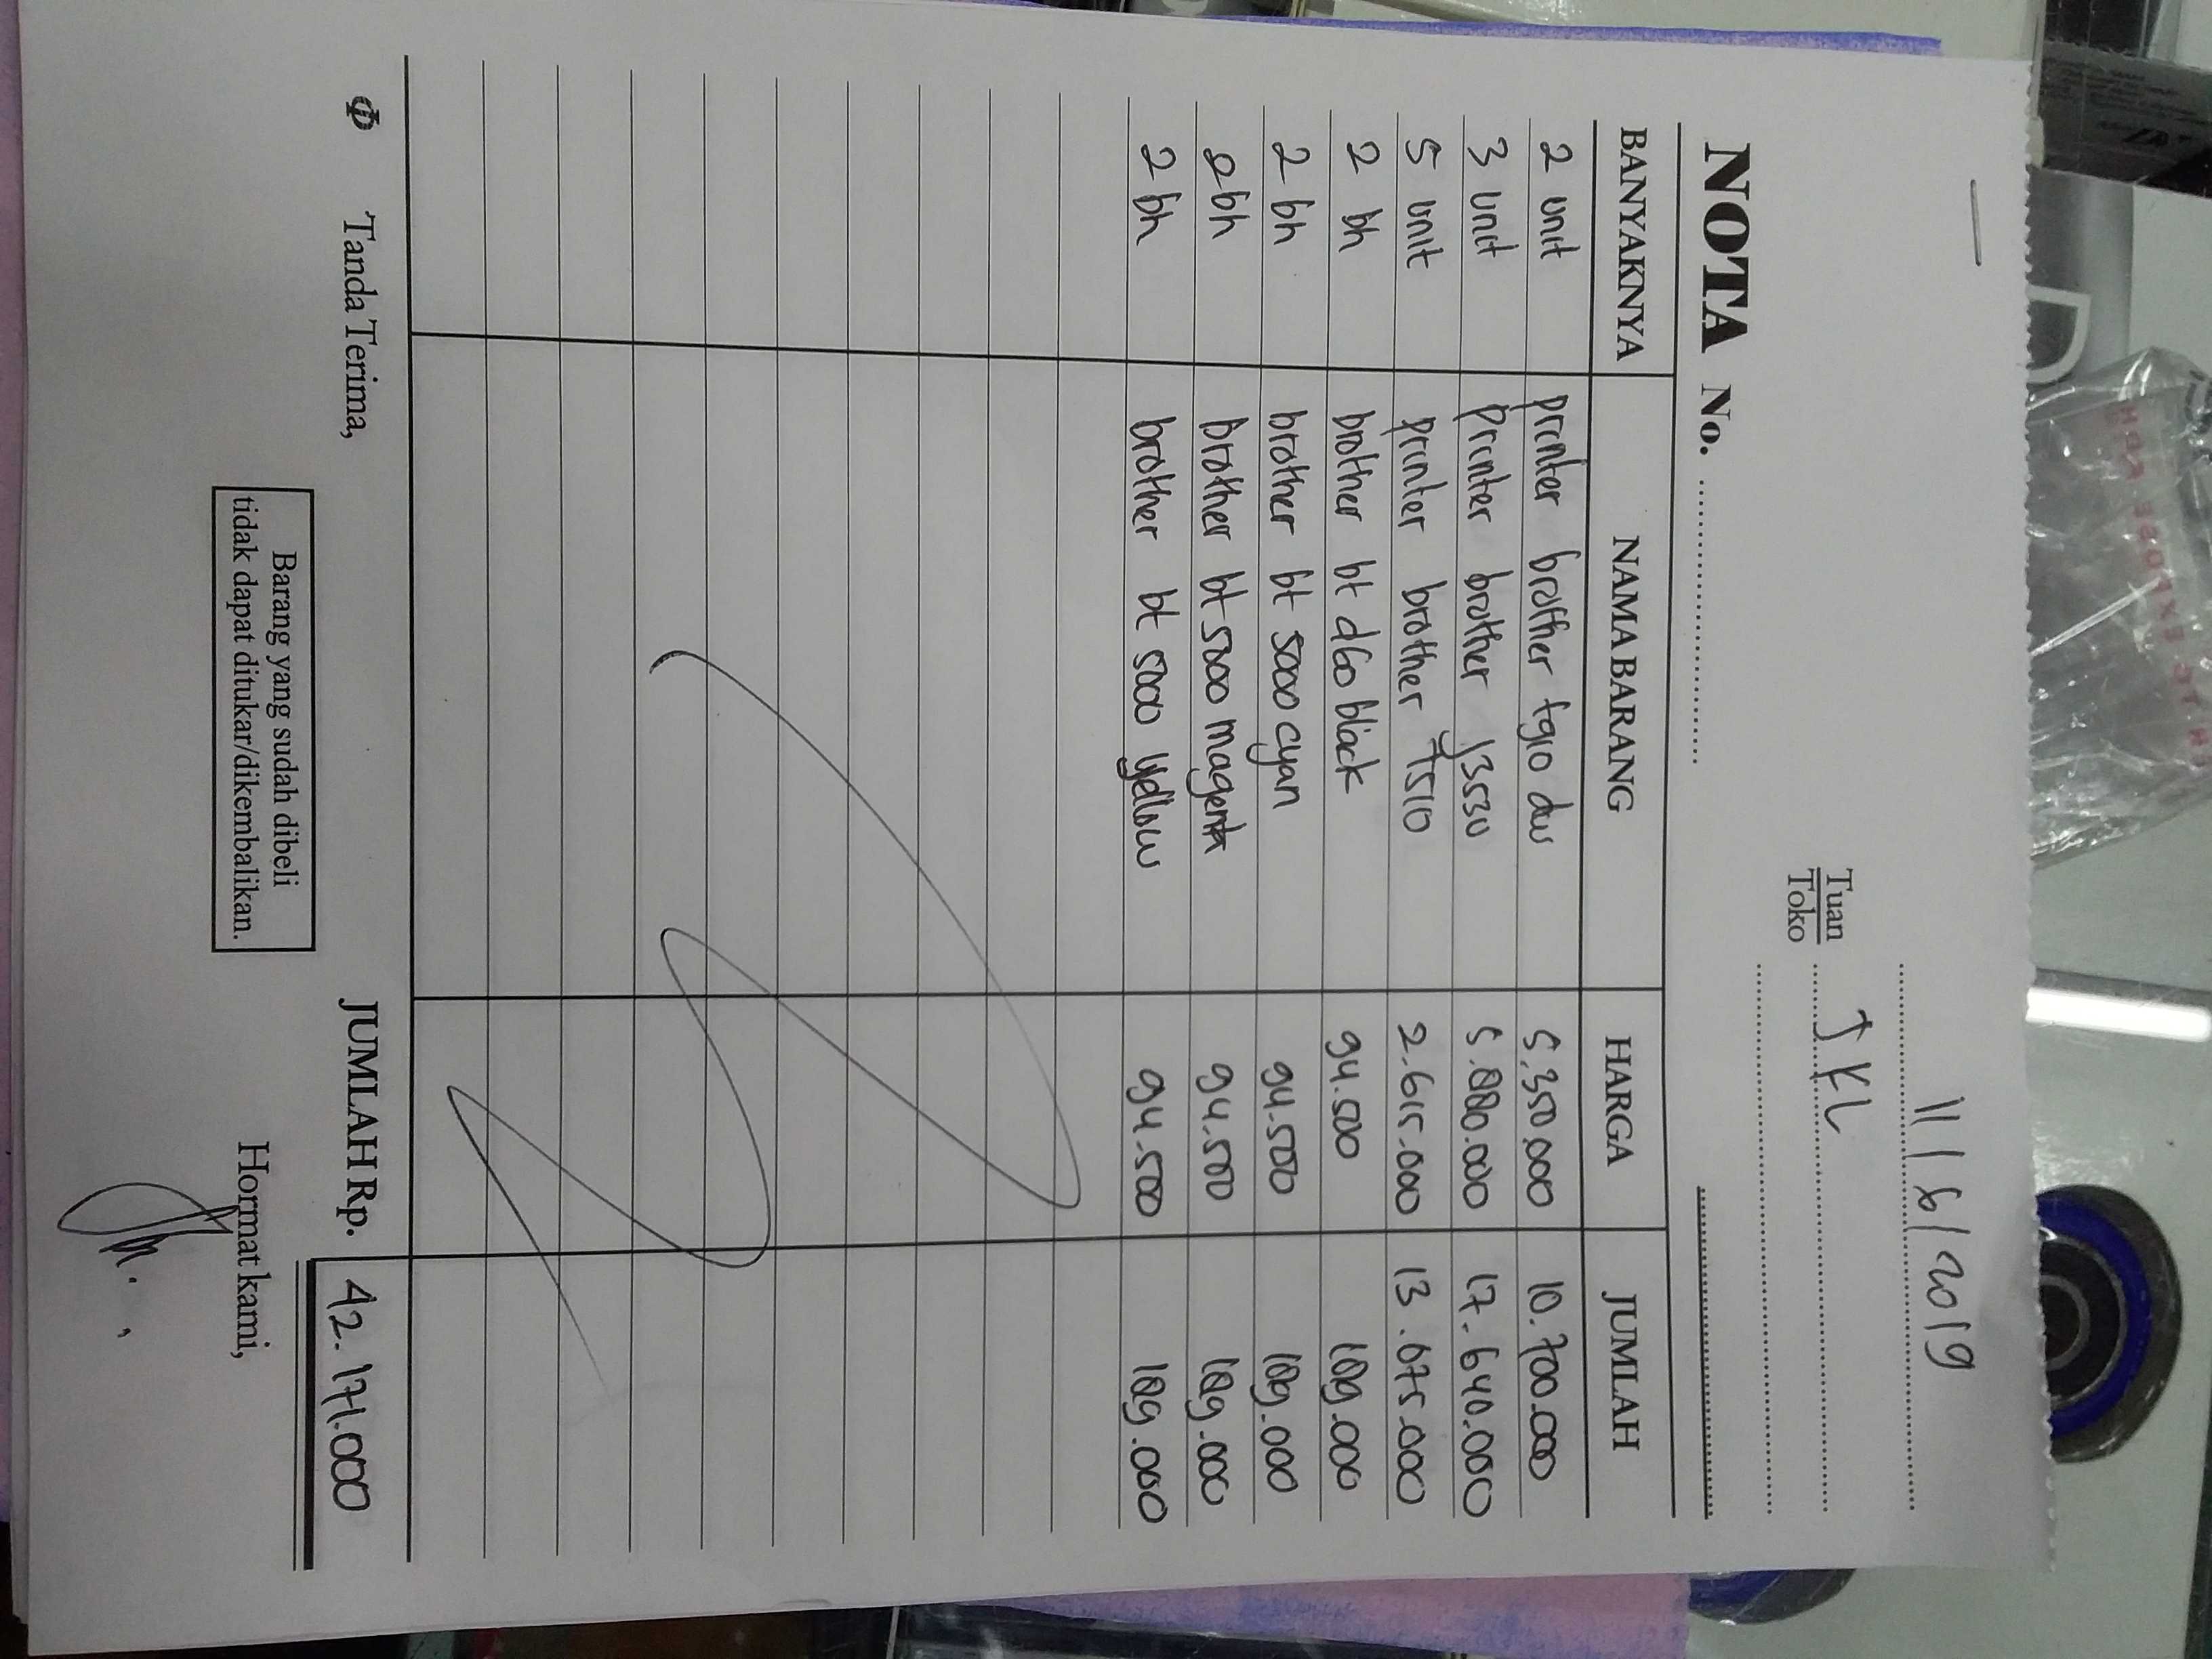 11/6/2019
Tuan JKL
Toko
NOTA No.
BANYAKNYA NAMA BARANG HARGA JUMLAH
2 unit printer brother t910 dw 5.350.000 10.700.000
3 unit printer brother J3530 5.880.000 17.640.000
5 unit printer brother T510 2.615.000 13.075.000
2 bh brother bt d60 black 94.500 189.000
2 bh brother bt 5000 cyan 94.500 189.000
2 bh brother bt 5000 magenta 94.500 189.000
2 bh brother bt 5000 yellow 94.500 189.000
JUMLAH Rp. 42.171.000
Φ Tanda Terima,
Barang yang sudah dibeli
tidak dapat ditukar/dikembalikan.
Hormat kami,